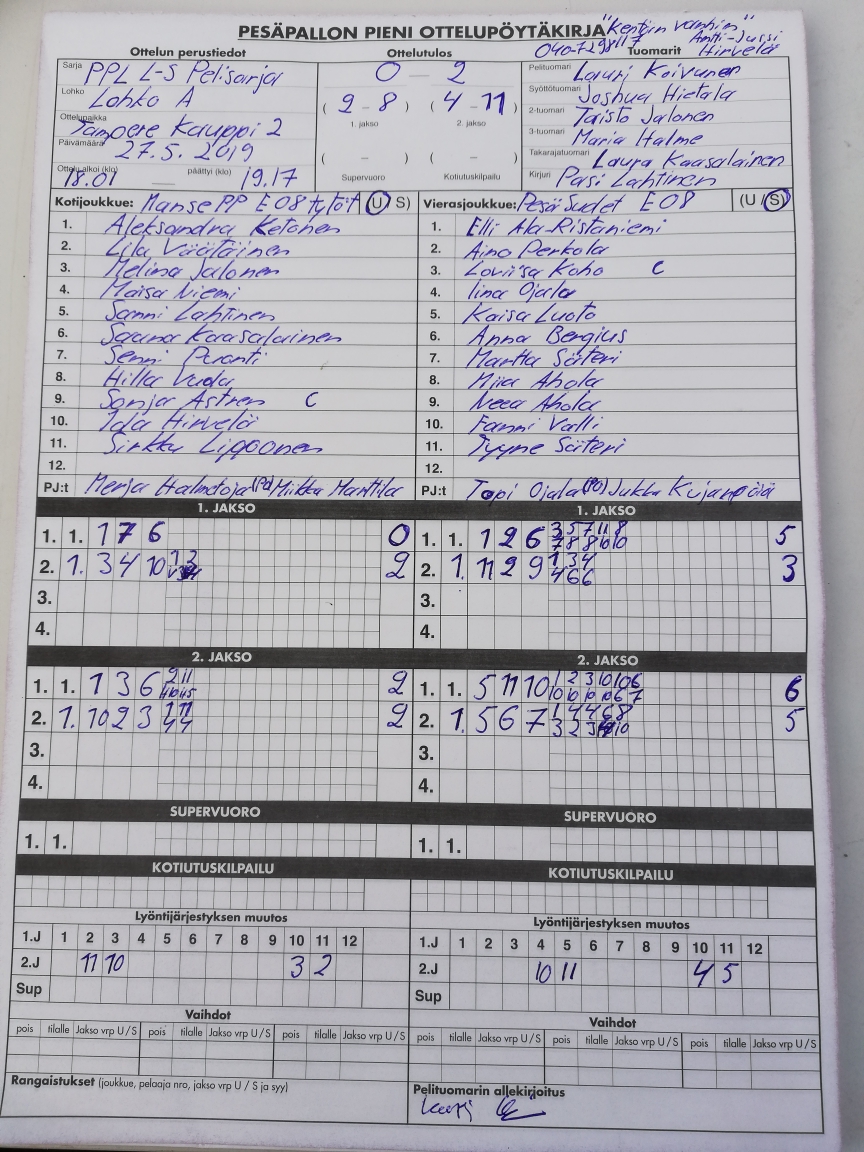 PESÄPALLON PIENI OTTELUPÖYTÄKIRJA "Kentän vanhin"
Antti-Jussi
Hirvelä
Ottelun perustiedot Ottelutulos Tuomarit
Sarja PPL L-S Pelisarja
Lohko Lohko A
Ottelupaikka Tampere Kauppi 2
Päivämäärä 27.5. 2019
Ottelu alkoi (klo) 18.01 päättyi (klo) 19.17
0 – 2
( 2 – 8 ) ( 4 – 11 )
1. jakso 2. jakso
( – ) ( – )
Supervuoro Kotiutuskilpailu
Pelituomari Lauri Koivunen
Syöttötuomari Joshua Hietala
2-tuomari Taisto Jalonen
3-tuomari Maria Halme
Takarajatuomari Laura Kaasalainen
Kirjuri Pasi Lahtinen
Kotijoukkue: Manse PP E08 tytöt (U S)
1. Aleksandra Ketonen
2. Lila Väätäinen
3. Melina Jalonen
4. Maisa Niemi
5. Sanni Lahtinen
6. Saana Kaasalainen
7. Senni Puonti
8. Hilla
9. Sonja Astren C
10. Ida Hirvelä
11. Sirkku Liqoonen
12.
PJ:t Merja Halmetoja (PJ) Miikka Manttila
Vierasjoukkue: Pesä Sudet E08 (U / S)
1. Elli Ala-Ristaniemi
2. Aino Perkola
3. Loviisa Koho C
4. Iina Ojala
5. Kaisa Luoto
6. Anna Bergius
7. Martta Säteri
8. Miia Ahola
9. Neea Ahola
10. Fanni Valli
11. Tyyne Säteri
12.
PJ:t Topi Ojala (PJ) Jukka Kujanpää
1. JAKSO
1. 1. 1 7 6 0
2. 1. 3 4 10 2
3.
4.
1. JAKSO
1. 1. 1 2 6 3 5 7 11 8 5
7 8 8 10 10
2. 1. 11 2 9 1 3 4 3
4 6 6
3.
4.
2. JAKSO
1. 1. 1 3 6 2 11 2
2. 1. 10 2 3 1 11 2
4 4
3.
4.
2. JAKSO
1. 1. 5 11 10 1 2 3 10 10 6 6
10 10 10 10 6 7
2. 1. 5 6 7 1 4 4 6 8 5
3 2 3 10
3.
4.
SUPERVUORO
1. 1.
SUPERVUORO
1. 1.
KOTIUTUSKILPAILU
KOTIUTUSKILPAILU
Lyöntijärjestyksen muutos
1.J 1 2 3 4 5 6 7 8 9 10 11 12
2.J 11 10 3 2
Sup
Lyöntijärjestyksen muutos
1.J 1 2 3 4 5 6 7 8 9 10 11 12
2.J 10 11 4 5
Sup
Vaihdot
pois tilalle Jakso vrp U / S pois tilalle Jakso vrp U / S pois tilalle Jakso vrp U / S
Vaihdot
pois tilalle Jakso vrp U / S pois tilalle Jakso vrp U / S pois tilalle Jakso vrp U / S
Rangaistukset (joukkue, pelaaja nro, jakso vrp U / S ja syy)
Pelituomarin allekirjoitus